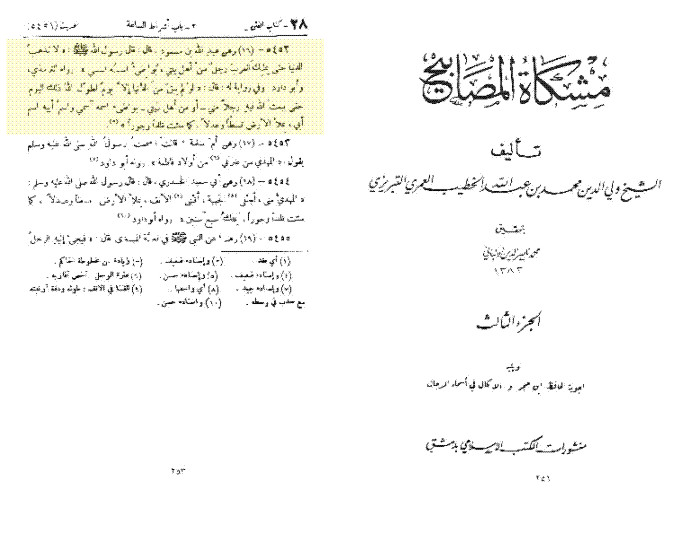 مشكاة المصابيح
تأليف
الشيخ ولي الدين محمد بن عبد الله الخطيب العمري التبريزي
بتحقيق
محمد ناصر الدين الألباني
١٣٨٣
الجزء الثالث
ويليه
أجوبة الحافظ ابن حجر والاكمال في أسماء الرجال
منشورات المكتب الإسلامي بدمشق
٢٥١
٢٨ - كتاب الفتن
٢ - باب أشراط الساعة
حديث (٥٤٥١)
٥٤٥٢ - (١٦) وعن عبد الله بن مسعود، قال: قال رسول الله ﷺ: « لا تذهب
الدنيا حتى يملك العرب رجل من أهل بيتي، يواطئ اسمه اسمي ». رواه الترمذي،
وأبو داود. وفي رواية له: قال: « لو لم يبق من الدنيا إلا يوم لطول الله ذلك اليوم
حتى يبعث الله فيه رجلاً مني - أو من أهل بيتي - يواطئ اسمه اسمي واسم أبيه اسم
أبي، يملأ الأرض قسطاً وعدلاً، كما ملئت ظلماً وجوراً »
٥٤٥٣ - (١٧) وعن أم سلمة، قالت: سمعت رسول الله صلى الله عليه وسلم
يقول: « المهدي من عترتي من أولاد فاطمة ». رواه أبو داود
٥٤٥٤ - (١٨) وعن أبي سعيد الخدري، قال: قال رسول الله صلى الله عليه وسلم:
« المهدي مني، أجلى الجبهة، أقنى الأنف، يملأ الأرض قسطاً وعدلاً، كما
ملئت ظلماً وجوراً، يملك سبع سنين ». رواه أبو داود (١٠)
٥٤٥٥ - (١٩) وعنه عن النبي ﷺ في قصة المهدي قال: « فيجيء إليه الرجل
(١) أي فقد . (٢) وإسناده ضعيف . (٣) زيادة من مخطوطة الحاكم .
(٤) وإسناده ضعيف . (٥) وإسناده حسن .
(٧) وإسناده جيد .
مع حدب في وسطه . (١٠) وإسناده حسن .
٢٥٣